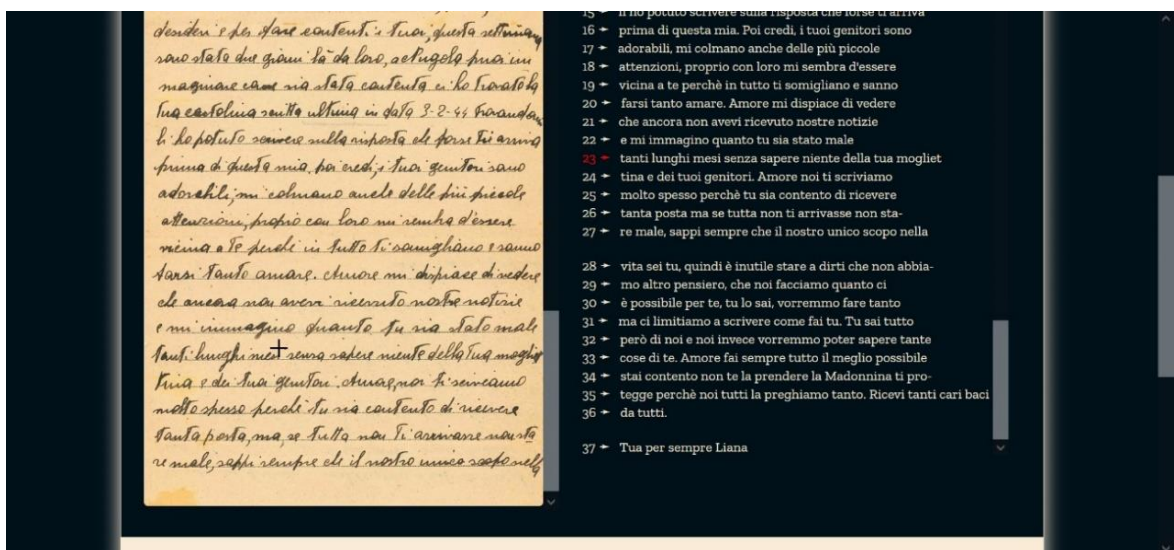 desideri e per fare contenti i tuoi, questa settimana
sono stata due giorni là da loro, a Angola puoi im
maginare come sia stata contenta ci ho trovato la
tua cartolina scritta ultima in data 3-2-44 trovando
li ho potuto scrivere sulla risposta che forse ti arriva
prima di questa mia, poi credi, i tuoi genitori sono
adorabili, mi colmano anche delle più piccole
attenzioni, proprio con loro mi sembra d'essere
vicina a te perchè in tutto ti somigliano e sanno
farsi tanto amare. Amore mi dispiace di vedere
che ancora non avevi ricevuto nostre notizie
e mi immagino quanto tu sia stato male
tanti lunghi mesi senza sapere niente della tua mogliet
tina e dei tuoi genitori. Amore, noi ti scriviamo
molto spesso perchè tu sia contento di ricevere
tanta posta, ma, se tutta non ti arrivasse non sta
re male, sappi sempre che il nostro unico scopo nella
15 li ho potuto scrivere sulla risposta che forse ti arriva
16 prima di questa mia. Poi credi, i tuoi genitori sono
17 adorabili, mi colmano anche delle più piccole
18 attenzioni, proprio con loro mi sembra d'essere
19 vicina a te perchè in tutto ti somigliano e sanno
20 farsi tanto amare. Amore mi dispiace di vedere
21 che ancora non avevi ricevuto nostre notizie
22 e mi immagino quanto tu sia stato male
23 tanti lunghi mesi senza sapere niente della tua mogliet
24 tina e dei tuoi genitori. Amore noi ti scriviamo
25 molto spesso perchè tu sia contento di ricevere
26 tanta posta ma se tutta non ti arrivasse non sta-
27 re male, sappi sempre che il nostro unico scopo nella
28 vita sei tu, quindi è inutile stare a dirti che non abbia-
29 mo altro pensiero, che noi facciamo quanto ci
30 è possibile per te, tu lo sai, vorremmo fare tanto
31 ma ci limitiamo a scrivere come fai tu. Tu sai tutto
32 però di noi e noi invece vorremmo poter sapere tante
33 cose di te. Amore fai sempre tutto il meglio possibile
34 stai contento non te la prendere la Madonnina ti pro-
35 tegge perchè noi tutti la preghiamo tanto. Ricevi tanti cari baci
36 da tutti.
37 Tua per sempre Liana